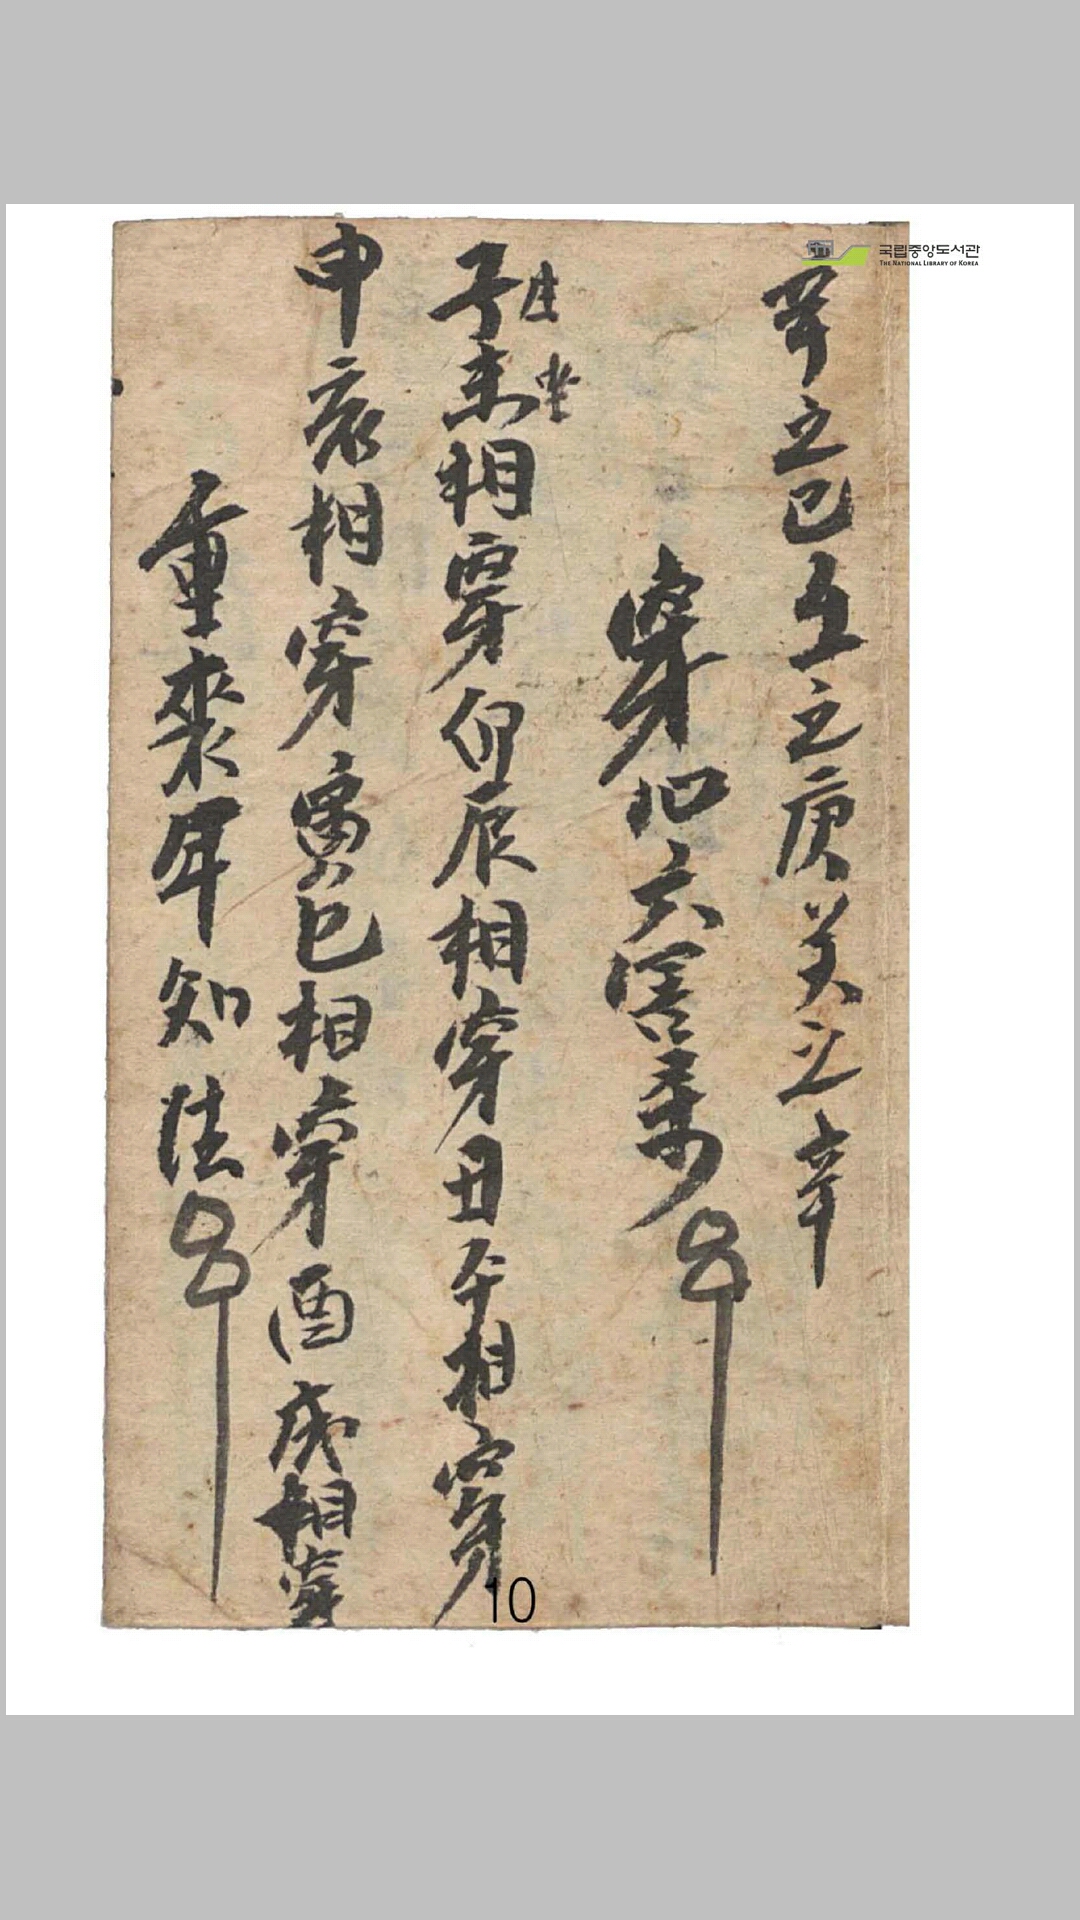 국립중앙도서관
THE NATIONAL LIBRARY OF KOREA
之己 之庚 之辛
穿心六害
子未相穿卯辰相穿丑午相穿
生
申亥相穿寅巳相穿酉戌相穿
重喪年知法
10